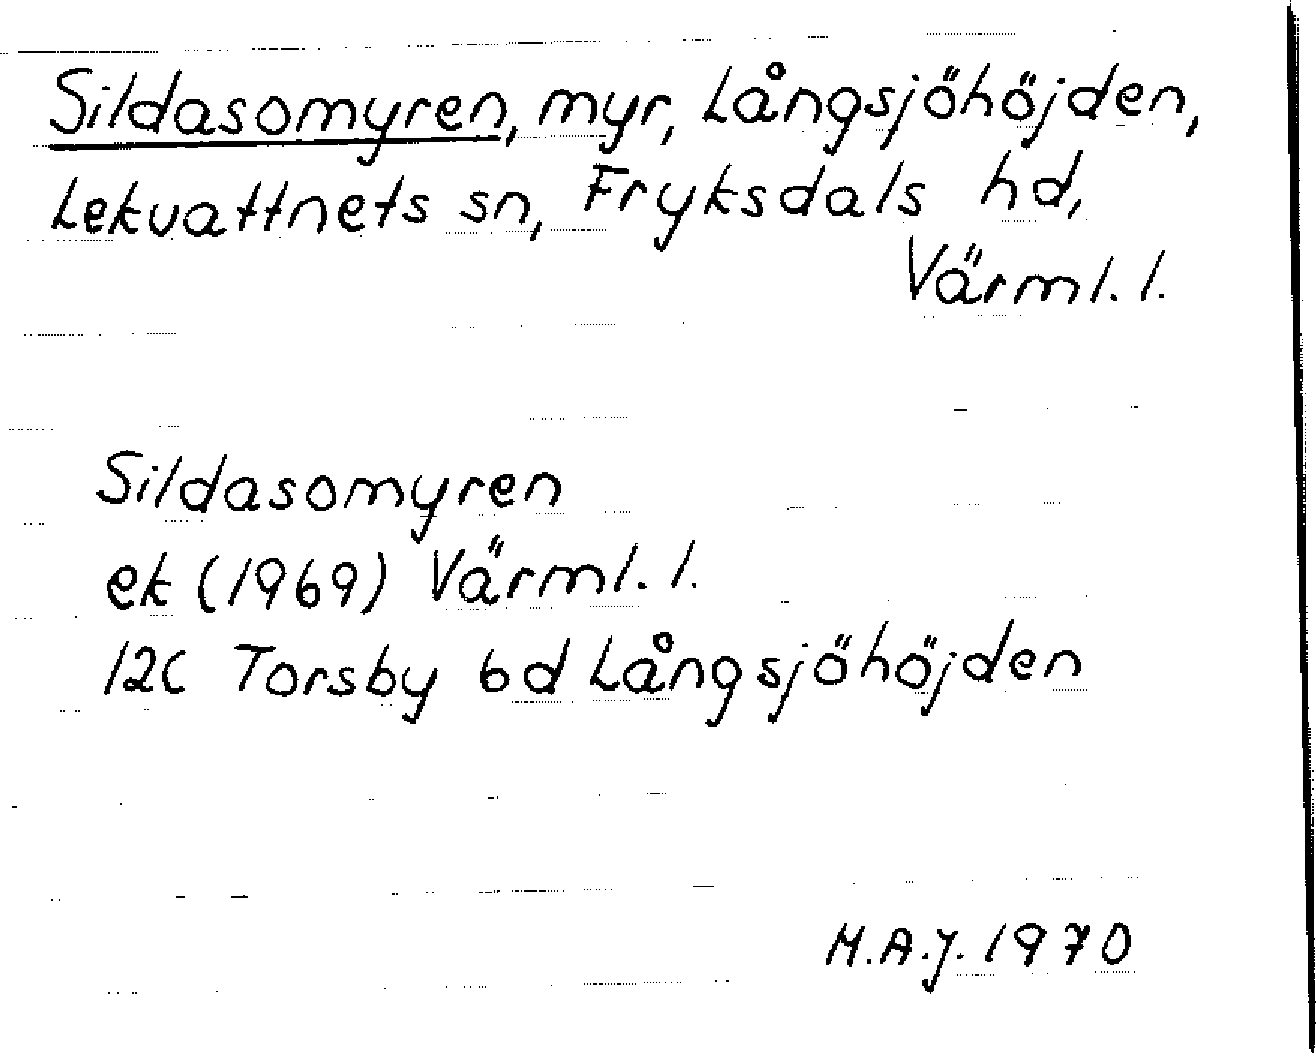 Sildasomyren, myr, Långsjöhöjden,
Lekvattnets sn, Fryksdals hd,
Värml. l.
Sildasomyren
ek (1969) Värml. l.
12C Torsby 6d Långsjöhöjden
M.A.J. 1970